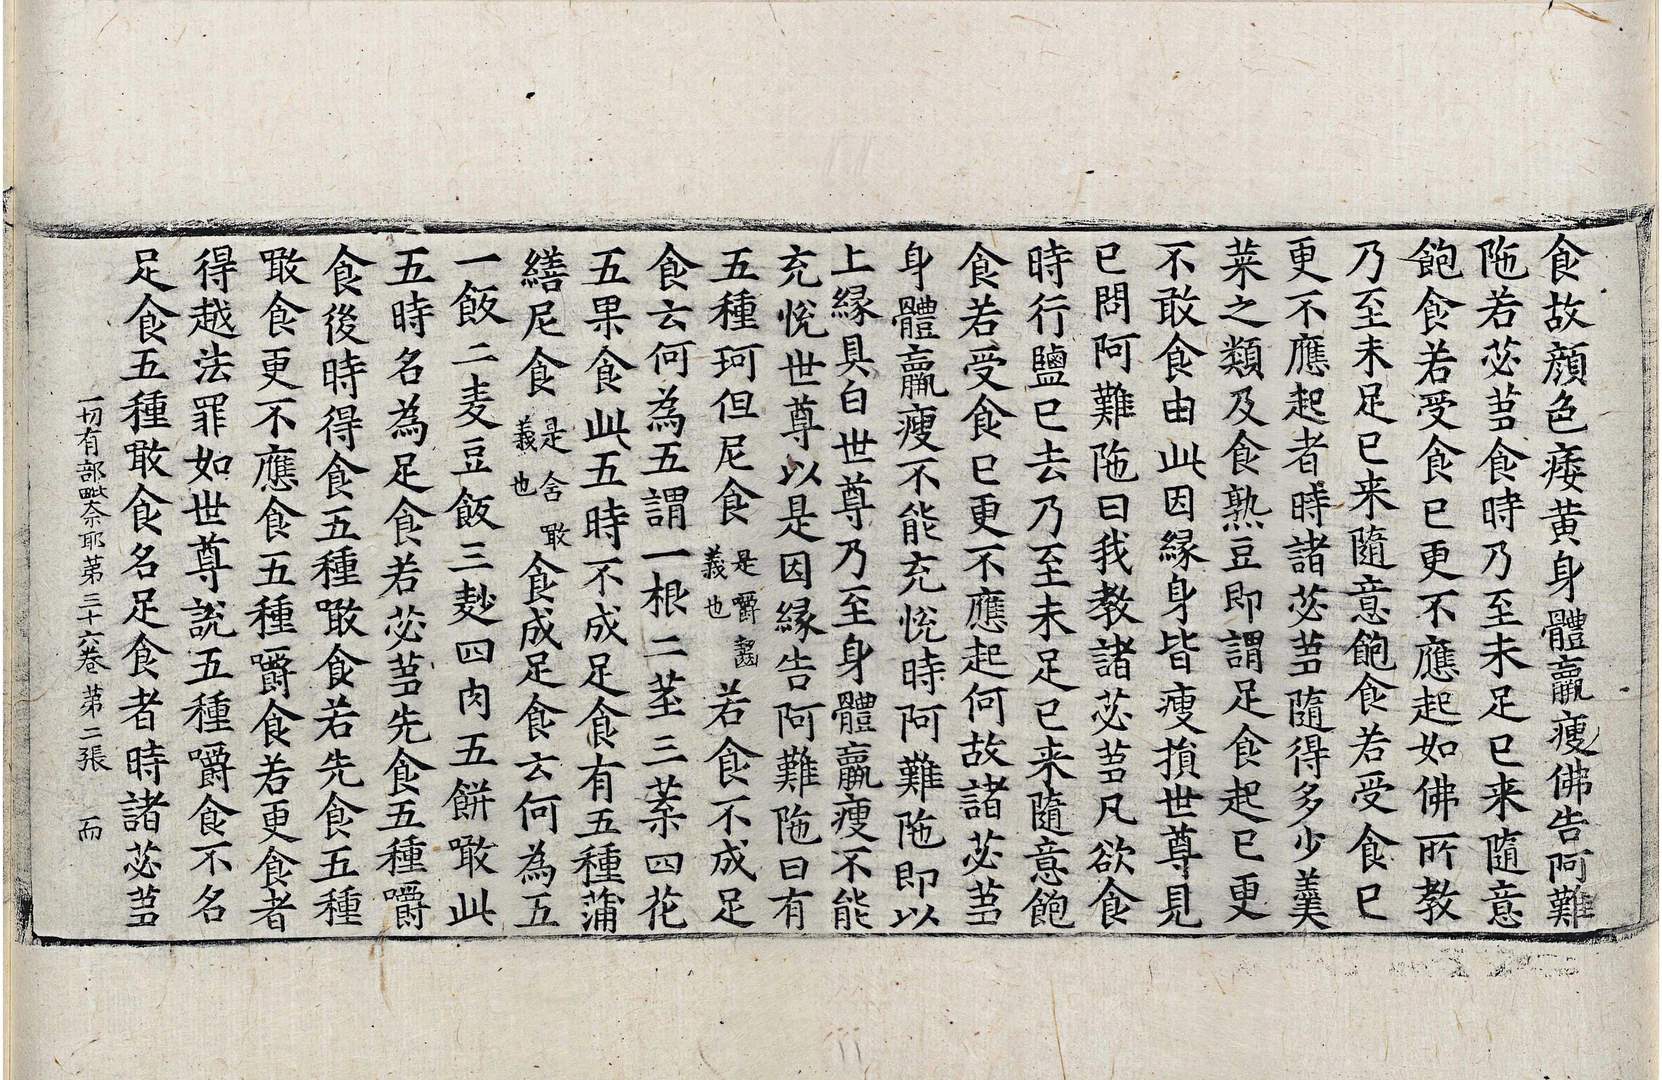 食故顔色痿黄身體羸瘦佛告阿難
陁若苾芻食時乃至未足已来隨意
飽食若受食已更不應起如佛所教
乃至未足已来隨意飽食若受食已
更不應起者時諸苾芻隨得多少羹
菜之類及食熟豆即謂足食起已更
不敢食由此因縁身皆瘦損世尊見
已問阿難陁曰我教諸苾芻凡欲食
時行鹽已去乃至未足已来隨意飽
食若受食已更不應起何故諸苾芻
身體羸瘦不能充悅時阿難陁即以
上縁具白世尊乃至身體羸瘦不能
充悅世尊以是因縁告阿難陁曰有
五種珂但尼食是嚼齧義也若食不成足
食云何為五謂一根二莖三葉四花
五果食此五時不成足食有五種蒲
繕尼食是含噉義也食成足食云何為五
一飯二麦豆飯三麨四肉五餅噉此
五時名為足食若苾芻先食五種嚼
食後時得食五種噉食若先食五種
噉食更不應食五種嚼食若更食者
得越法罪如世尊說五種嚼食不名
足食五種噉食名足食者時諸苾芻
一切有部毗奈耶第三十六卷 第二張 而